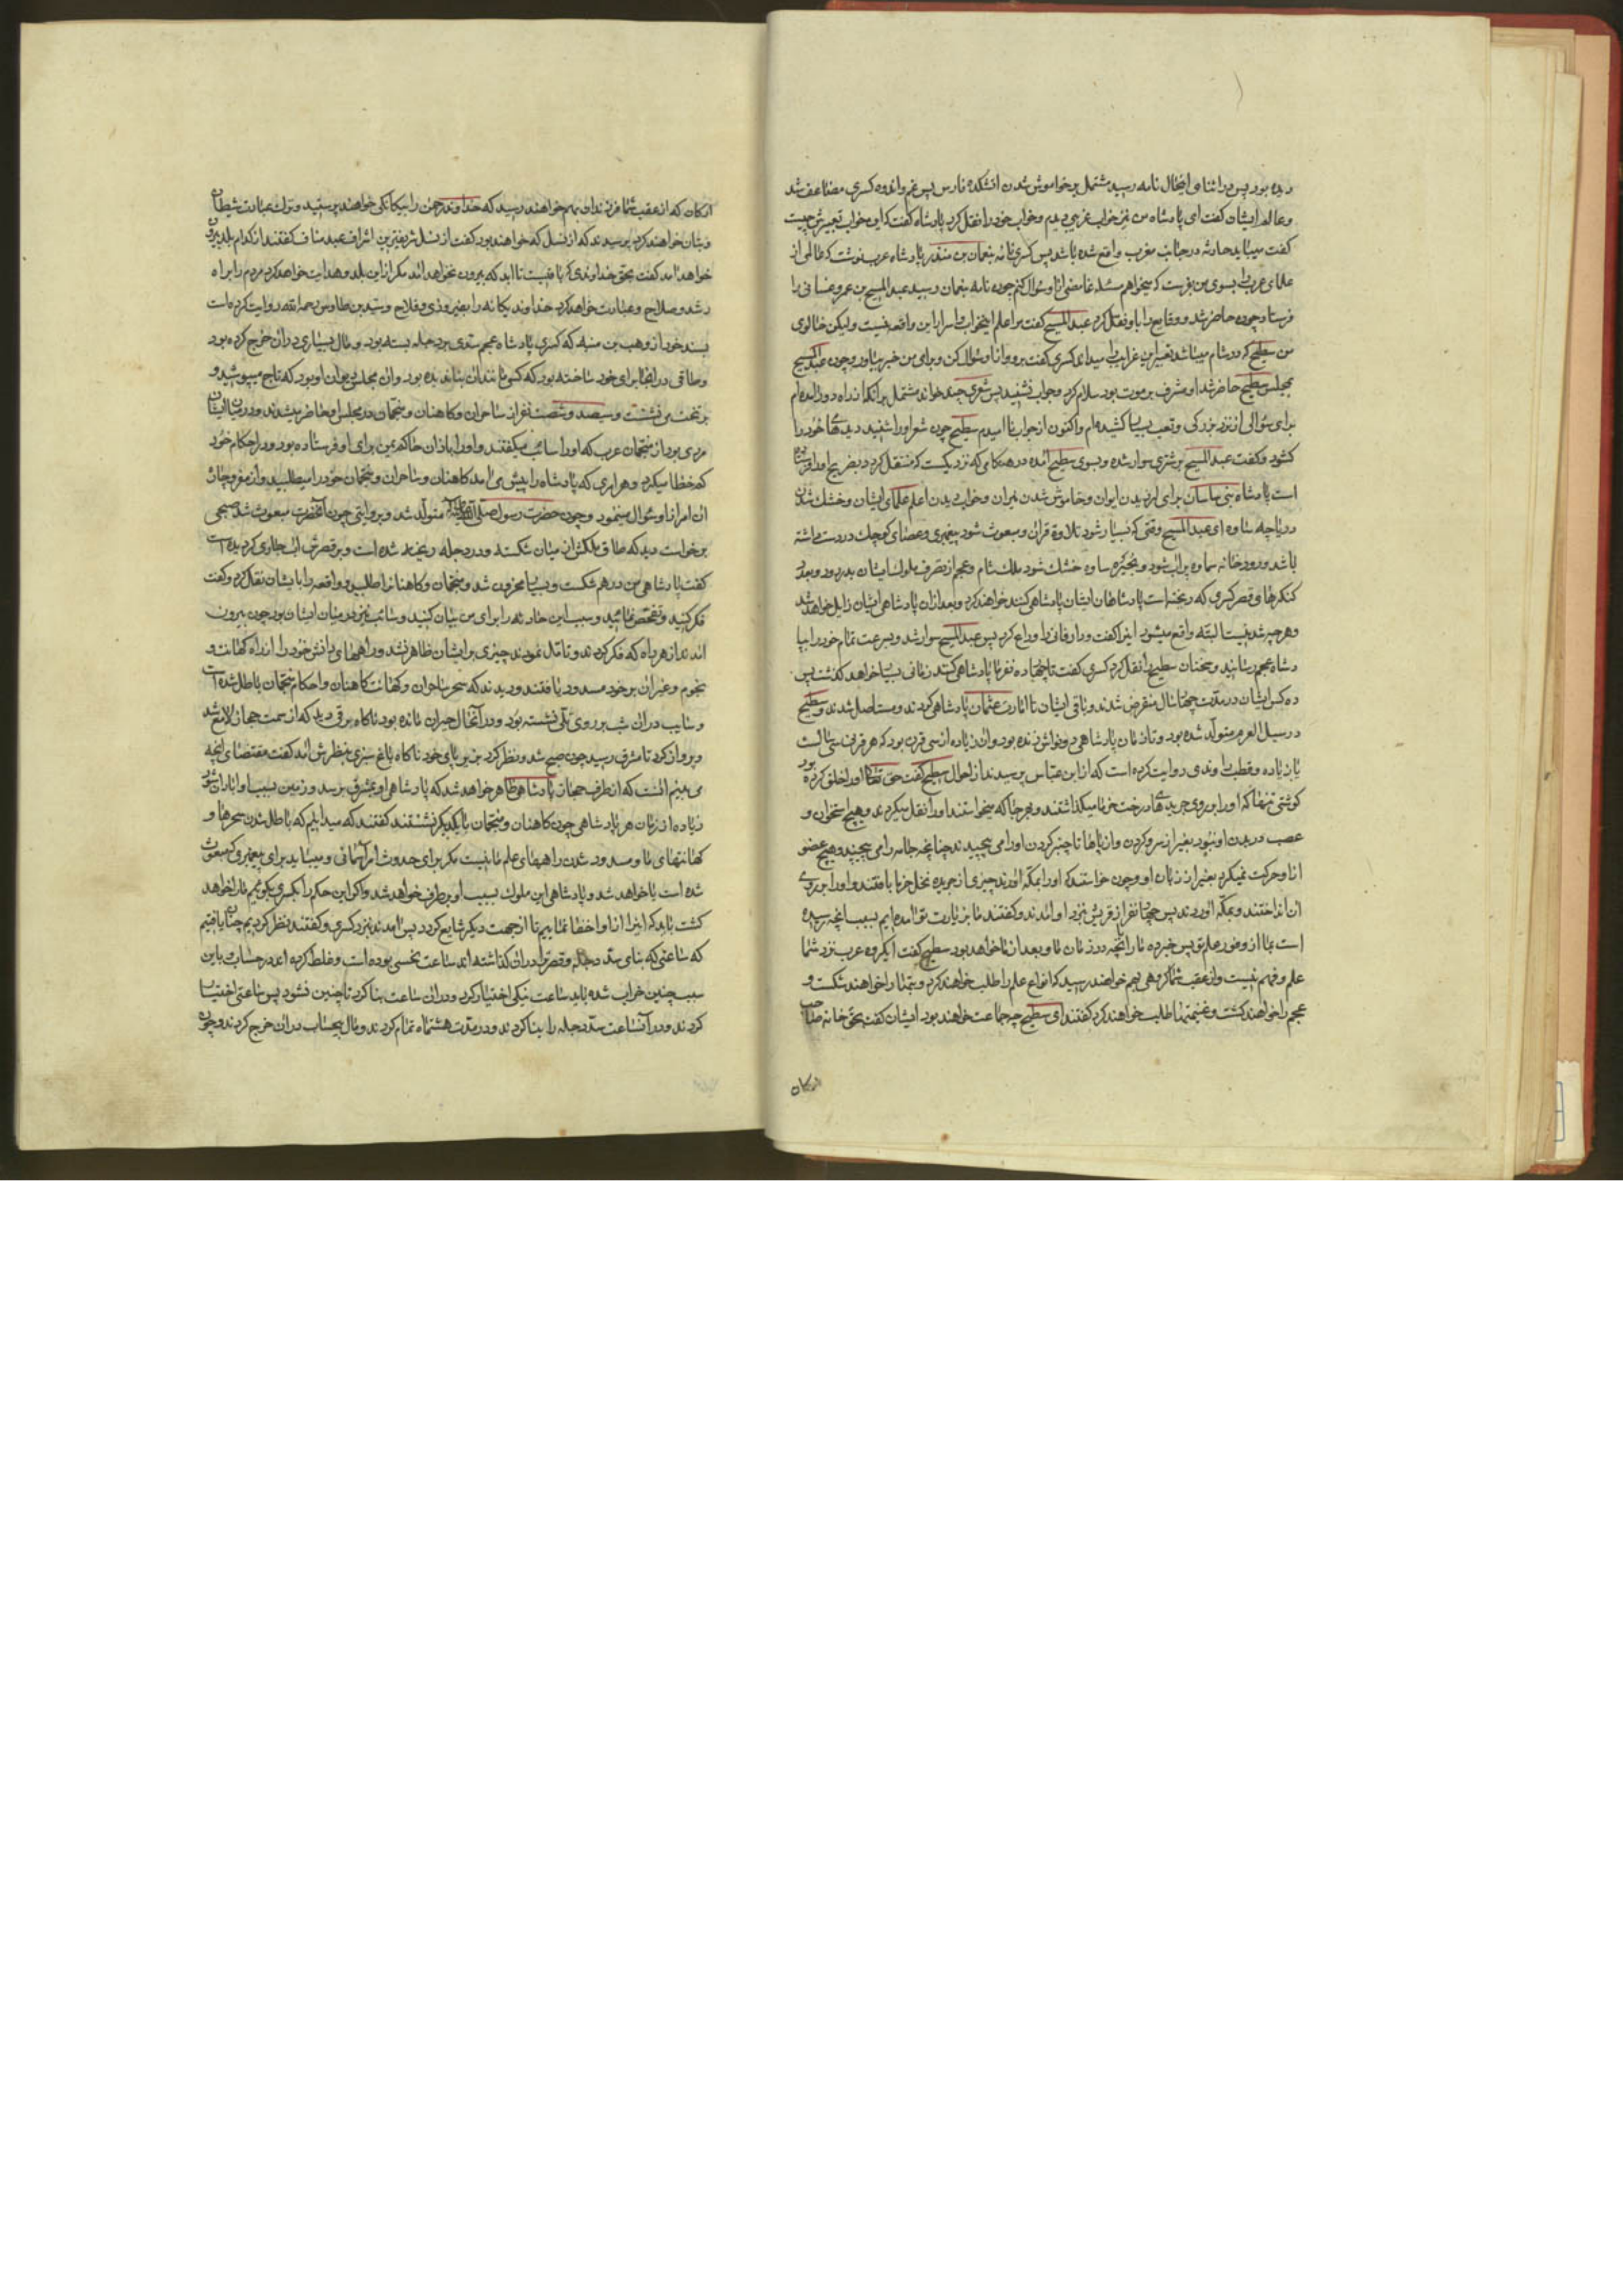 دیده بود پس در اثنای اینحال نامه رسید مشتمل بر خاموش شدن آتشکده فارس پس غم و اندوه کسری مضاعف شد
و عالم ایشان گفت ای پادشاه من نیز خواب غریبی دیدم و خواب خود را نقل کرد پادشاه گفت که این خواب تعبیرش چیست
گفت میباید حادثه در جانب مغرب واقع شده باشد پس کسری نامه بنعمان بن منذر پادشاه عرب نوشت که عالمی از
علمای عرب را بسوی من بفرست که میخواهم مسئله غامضی از او سؤال کنم چون نامه بنعمان رسید عبد المسیح بن عمرو غسانی را
فرستاد چون حاضر شد و وقایع را باو نقل کرد عبد المسیح گفت مرا علم اینخواب و اسرار این واقعه نیست ولیکن خالوی
من سطیح که در شام میباشد تعبیر این غرایب را میداند کسری گفت برو و از او سؤال کن و برای من خبر بیاور چون عبد المسیح
بمجلس سطیح حاضر شد او مشرف بر موت بود سلام کرد و جواب نشنید پس شعری چند خواند مشتمل بر آنکه از راه دور آمده‌ام
برای سؤالی از نزد بزرگی و تعب بسیار کشیده ام و اکنون از جواب نا امیدم سطیح چون شعر او را شنید دیدهای خود را
گشود و گفت عبد المسیح بر شتری سوار شده و بسوی سطیح آمده در هنگامی که نزدیکست که منتقل گردد بضریح او را فرستاده
است پادشاه بنی ساسان برای لرزیدن ایوان و خاموش شدن نیران و خواب دیدن اعلم علمای ایشان و خشک شدن
دریاچه ساوه ای عبد المسیح وقتی که بسیار شود تلاوة قرآن و مبعوث شود پیغمبری و عصای کوچک در دست داشته
باشد و رودخانه سماوه پر آب شود و بحیره ساوه خشک شود ملک شام و عجم از تصرف ملوک ایشان بدر رود و بعدد
کنگرهای قصر کسری که ریخته است پادشاهان ایشان پادشاهی کنند خواهند کرد و بعد از آن پادشاهی ایشان زایل خواهد شد
و هر چه شدنیست البته واقع میشود اینرا گفت و دار فانی را وداع کرد پس عبد المسیح سوار شد و بسرعت تمام خود را بپا
دشاه عجم رسانید و سخنان سطیح را نقل کرد کسری گفت تا چهارده نفر ما پادشاهی کنند زمانی بسیار خواهد گذشت پس
ده کس ایشان در مدت چهار سال منقرض شدند و باقی ایشان تا امارت عثمان پادشاهی کردند و مستاصل شدند و سطیح
در سیل العرم متولد شده بود و تا زمان پادشاهی ذونواس زنده بود و آن زیاده از سی قرن بود که هر قرنی سی سالست
یا زیاده و قطب راوندی روایت کرده است که از ابن عباس پرسیدند از احوال سطیح گفت حق تعالی او را خلق کرده بود
گوشتی تنها که او را بر روی جریدهای درخت خرما میگذاشتند و بهر جا که میخواستند او را نقل میکردند و هیچ استخوان و
عصب در بدن او نبود بغیر از سر و گردن و از پاها تا چنبر گردن او را می پیچیدند چنانچه جامه را می پیچند و هیچ عضو
از او حرکت نمیکرد بغیر از زبان او و چون خواستند که او را بمکه آورند چیزی از جریده نخل خرما بافتند و او را بر روی
آن انداختند و بمکه آوردند پس چهار نفر از قریش بنزد او آمدند و گفتند ما بزیارت تو آمده ایم بسبب آنچه رسیده
است بما از وفور علم تو پس خبر ده ما را بآنچه در زمان ما و بعد از ما خواهد بود سطیح گفت ای گروه عرب نزد شما
علم و فهم نیست و از عقب شما گروهی بهم خواهند رسید که انواع علم را طلب خواهند کرد و بتها را خواهند شکست و
عجم را خواهند کشت و غنیمتها طلب خواهند کرد گفتند ای سطیح چه جماعت خواهند بود ایشان گفت بحق خانه صاحب
ارکان
ارکان که از عقب شما فرزندان بهم خواهند رسید که خداوند رحمن را بیگانگی خواهند پرستید و ترک عبادت شیطان
و بتان خواهند کرد پرسیدند که از نسل که خواهند بود گفت از نسل شریفترین اشراف عبد مناف گفتند از کدام بلد بیرون
خواهد آمد گفت بحق خداوندی که باقیست تا ابد که بیرون نخواهد آمد مگر از این بلد و هدایت خواهد کرد مردم را براه
رشد و صلاح و عبادت خواهد کرد خداوند یگانه را بفیروزی و فلاح و سید بن طاوس رحمه الله روایت کرده است
بسند خود از وهب بن منبه که کسری پادشاه عجم سدی بر دجله بسته بود و مال بسیاری در آن خرج کرده بود
و طاقی در آنجا برای خود ساخته بود که کسی مانند آن بنا ندیده بود و آن مجلس دیوان او بود که تاج میپوشید و
بر تخت می نشست و سیصد و شصت نفر از ساحران و کاهنان و منجمان در مجلس او حاضر میشدند و در میان ایشان
مردی بود از منجمان عرب که او را سائب میگفتند و او را باذان حاکم یمن برای او فرستاده بود و در احکام خود
کم خطا میکرد و هر امری که پادشاه را پیش می آمد کاهنان و ساحران و منجمان خود را میطلبید و از مفر و چاره
آن امر از او سؤال مینمود و چون حضرت رسول صلی الله علیه و آله متولد شد و بروایتی چون آنحضرت مبعوث شد صبحی
برخواست دید که طاق ملکش از میان شکسته و در دجله ریخته شده است و بر قصرش آب جاری گردیده است
گفت پادشاهی من درهم شکست و بسیار محزون شد و منجمان و کاهنان را طلبید و واقعه را با ایشان نقل کرد و گفت
فکر کنید و تفحص نمائید و سبب این حادثه را برای من بیان کنید و سائب نیز در میان ایشان بود چون بیرون
آمدند از هر راه که فکر کردند و تامل نمودند چیزی بر ایشان ظاهر نشد و راههای دانش خود را از راه کهانت و
نجوم و غیر آن بر خود مسدود یافتند و دیدند که سحر ساحران و کهانت کاهنان و احکام منجمان باطل شده است
و سایب در آن شب بر روی تلی نشسته بود و در آنحال حیران مانده بود ناگاه برقی دید که از سمت حجاز لامع شد
و پرواز کرد تا مشرق رسید چون صبح شد و نظر کرد بزیر پای خود ناگاه باغ سبزی بنظرش آمد گفت مقتضای آنچه
می بینم آنست که از طرف حجاز پادشاهی ظاهر خواهد شد که پادشاهی او بمشرق برسد و زمین بسبب او آبادان شود
زیاده از زمان هر پادشاهی چون کاهنان و منجمان با یکدیگر نشستند گفتند که میدانیم که باطل شدن سحرها و
کهانتهای ما و مسدود شدن راههای علم ما نیست مگر برای حدوث امر آسمانی و میباید برای پیغمبری که مبعوث
شده است یا خواهد شد و پادشاهی این ملوک بسبب او برطرف خواهد شد و اگر این حکم را بکسری بگوئیم ما را خواهد
کشت باید که اینرا از او اخفا نمائیم تا از جهت دیگر شایع گردد پس آمدند بنزد کسری و گفتند نظر کردیم چنان یافتیم
که ساعتی که بنای سد دجله و قصر ترا در آن گذاشته اند ساعت نحسی بوده است و غلط کرده اند در حساب باین
سبب چنین خراب شده باید ساعت نیکی اختیار کرد و در آن ساعت بنا کرد تا چنین نشود پس ساعتی اختیار
کردند و در آنساعت سد دجله را بنا کردند و در مدت هشتماه تمام کردند و مال بیحساب در آن خرج کردند و چون